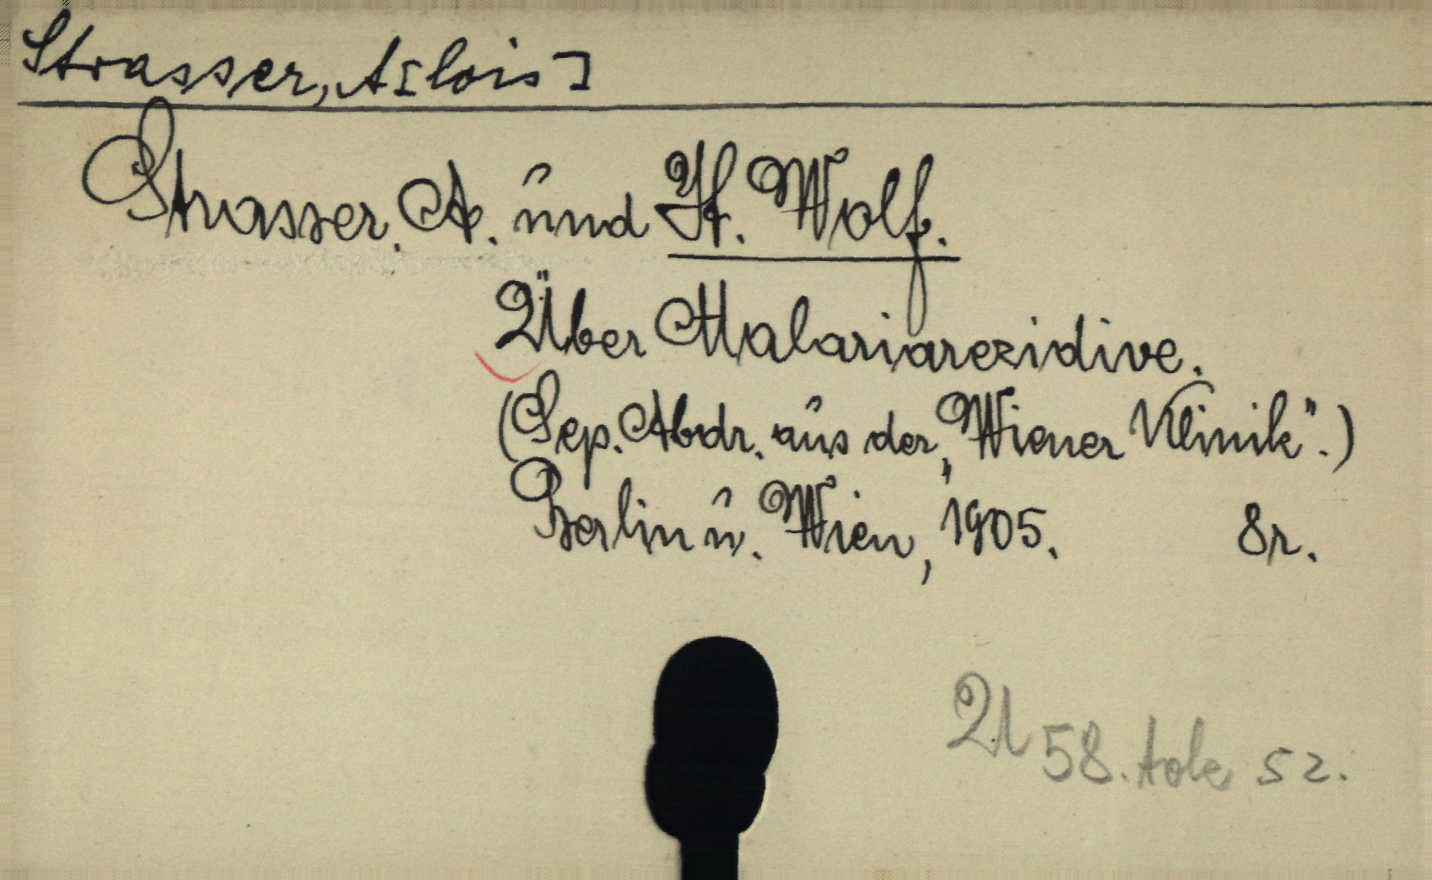 Strasser, A[lois]
Strasser. A. und H. Wolf.
Über Malariarezidive.
(Sep. Abdr. aus der „Wiener Klinik".)
Berlin u. Wien, 1905. 8r.
U 58. tole 52.